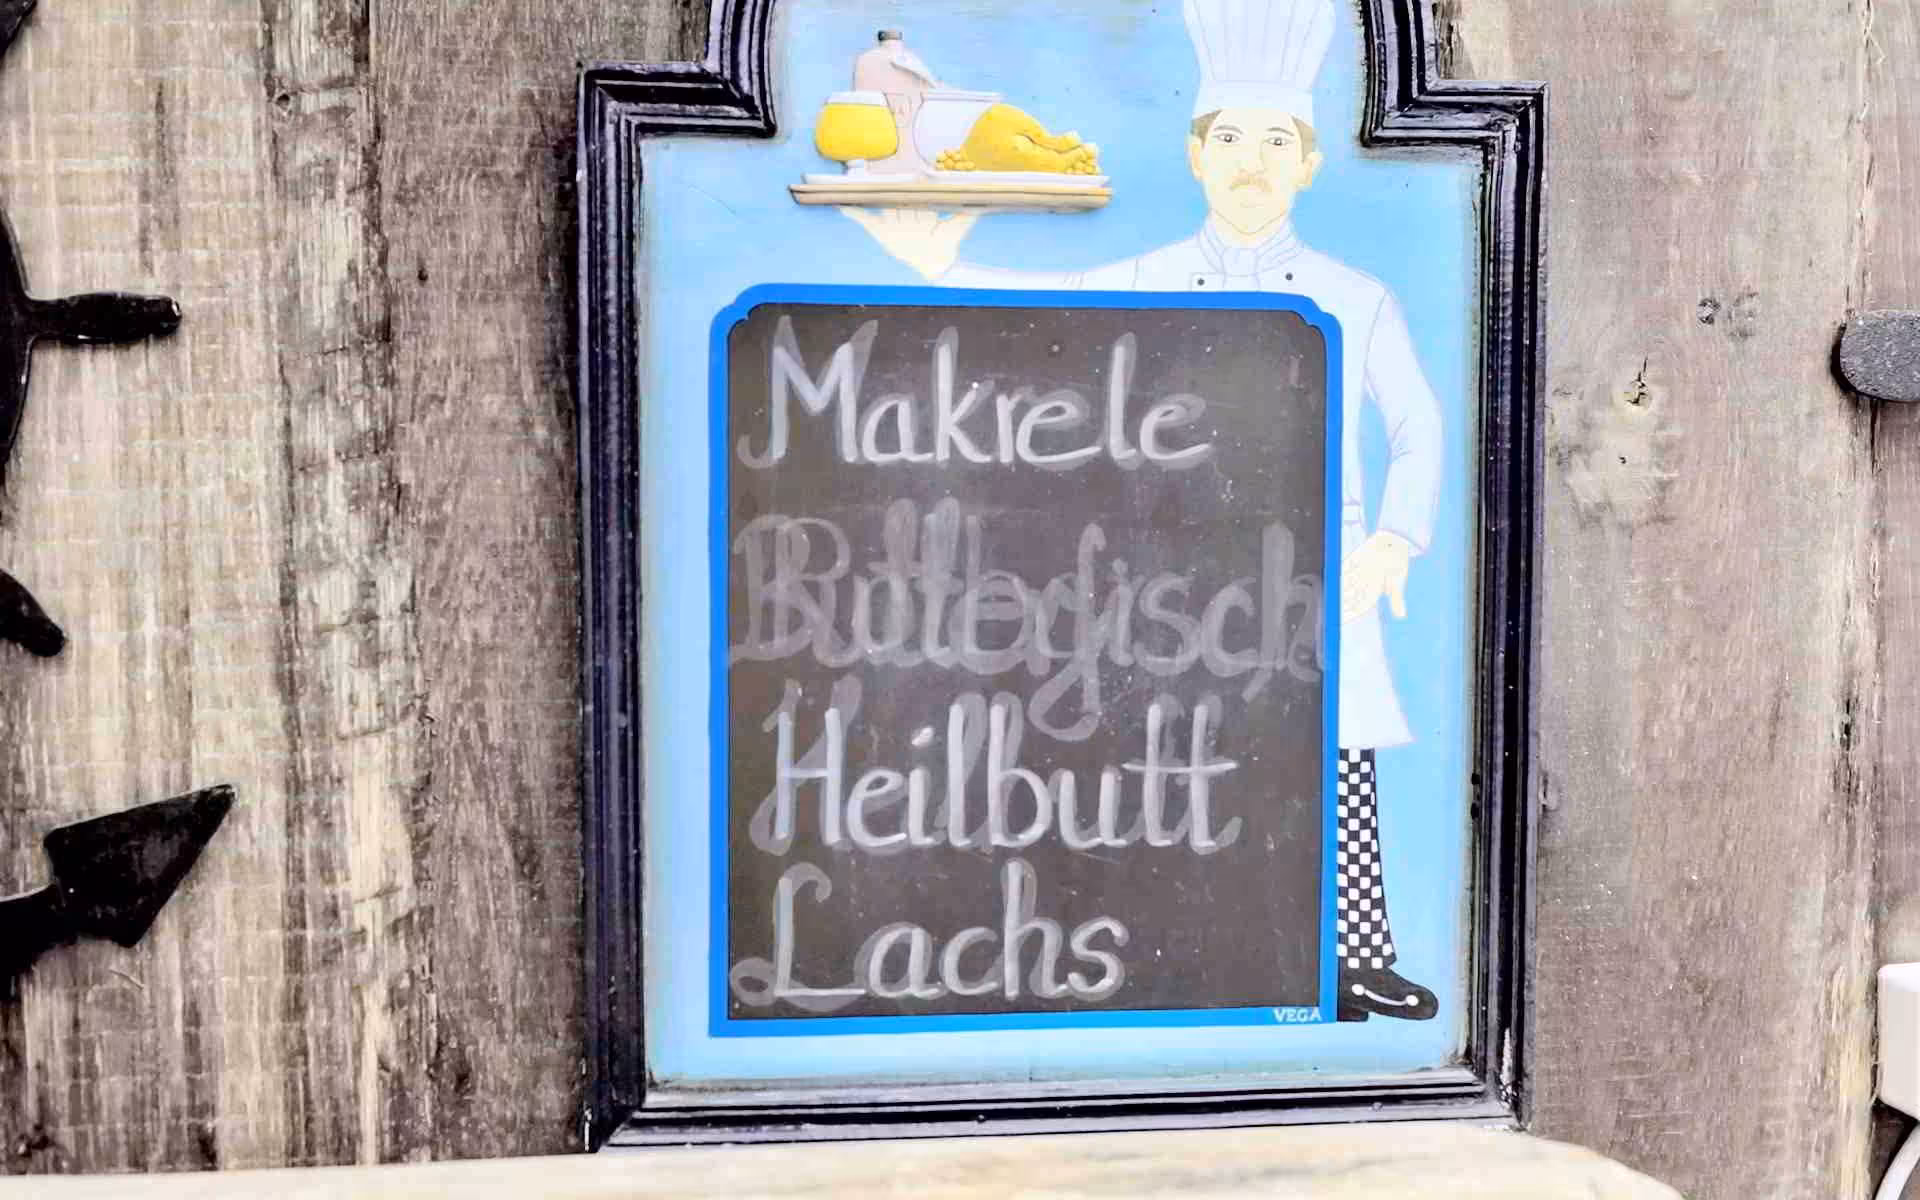 Makrele
Heilbutt
Lachs
VEGA